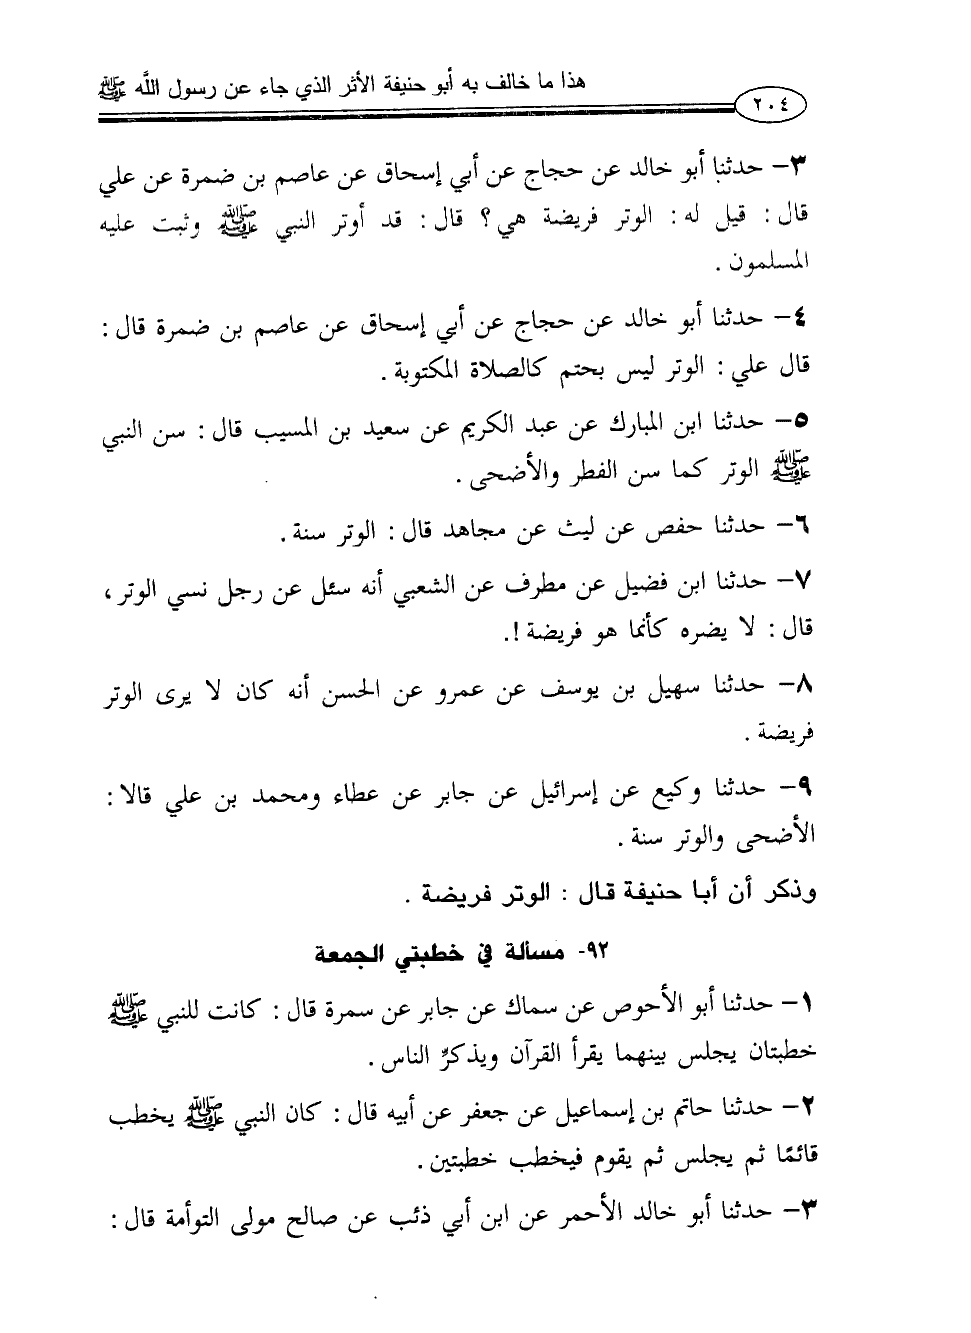 هذا ما خالف به أبو حنيفة الأثر الذي جاء عن رسول اللَّه ﷺ
٢٠٤
٣- حدثنا أبو خالد عن حجاج عن أبي إسحاق عن عاصم بن ضمرة عن علي
قال : قيل له : الوتر فريضة هي؟ قال : قد أوتر النبي ﷺ وثبت عليه
المسلمون .
٤- حدثنا أبو خالد عن حجاج عن أبي إسحاق عن عاصم بن ضمرة قال :
قال علي : الوتر ليس بحتم كالصلاة المكتوبة .
٥- حدثنا ابن المبارك عن عبد الكريم عن سعيد بن المسيب قال : سن النبي
ﷺ الوتر كما سن الفطر والأضحى .
٦- حدثنا حفص عن ليث عن مجاهد قال : الوتر سنة .
٧- حدثنا ابن فضيل عن مطرف عن الشعبي أنه سئل عن رجل نسي الوتر ،
قال : لا يضره كأنما هو فريضة !.
٨- حدثنا سهيل بن يوسف عن عمرو عن الحسن أنه كان لا يرى الوتر
فريضة .
٩- حدثنا وكيع عن إسرائيل عن جابر عن عطاء ومحمد بن علي قالا :
الأضحى والوتر سنة .
وذكر أن أبا حنيفة قال : الوتر فريضة .
٩٢- مسألة في خطبتي الجمعة
١- حدثنا أبو الأحوص عن سماك عن جابر عن سمرة قال : كانت للنبي ﷺ
خطبتان يجلس بينهما يقرأ القرآن ويذكرِّ الناس .
٢- حدثنا حاتم بن إسماعيل عن جعفر عن أبيه قال : كان النبي ﷺ يخطب
قائمًا ثم يجلس ثم يقوم فيخطب خطبتين .
٣- حدثنا أبو خالد الأحمر عن ابن أبي ذئب عن صالح مولى التوأمة قال :